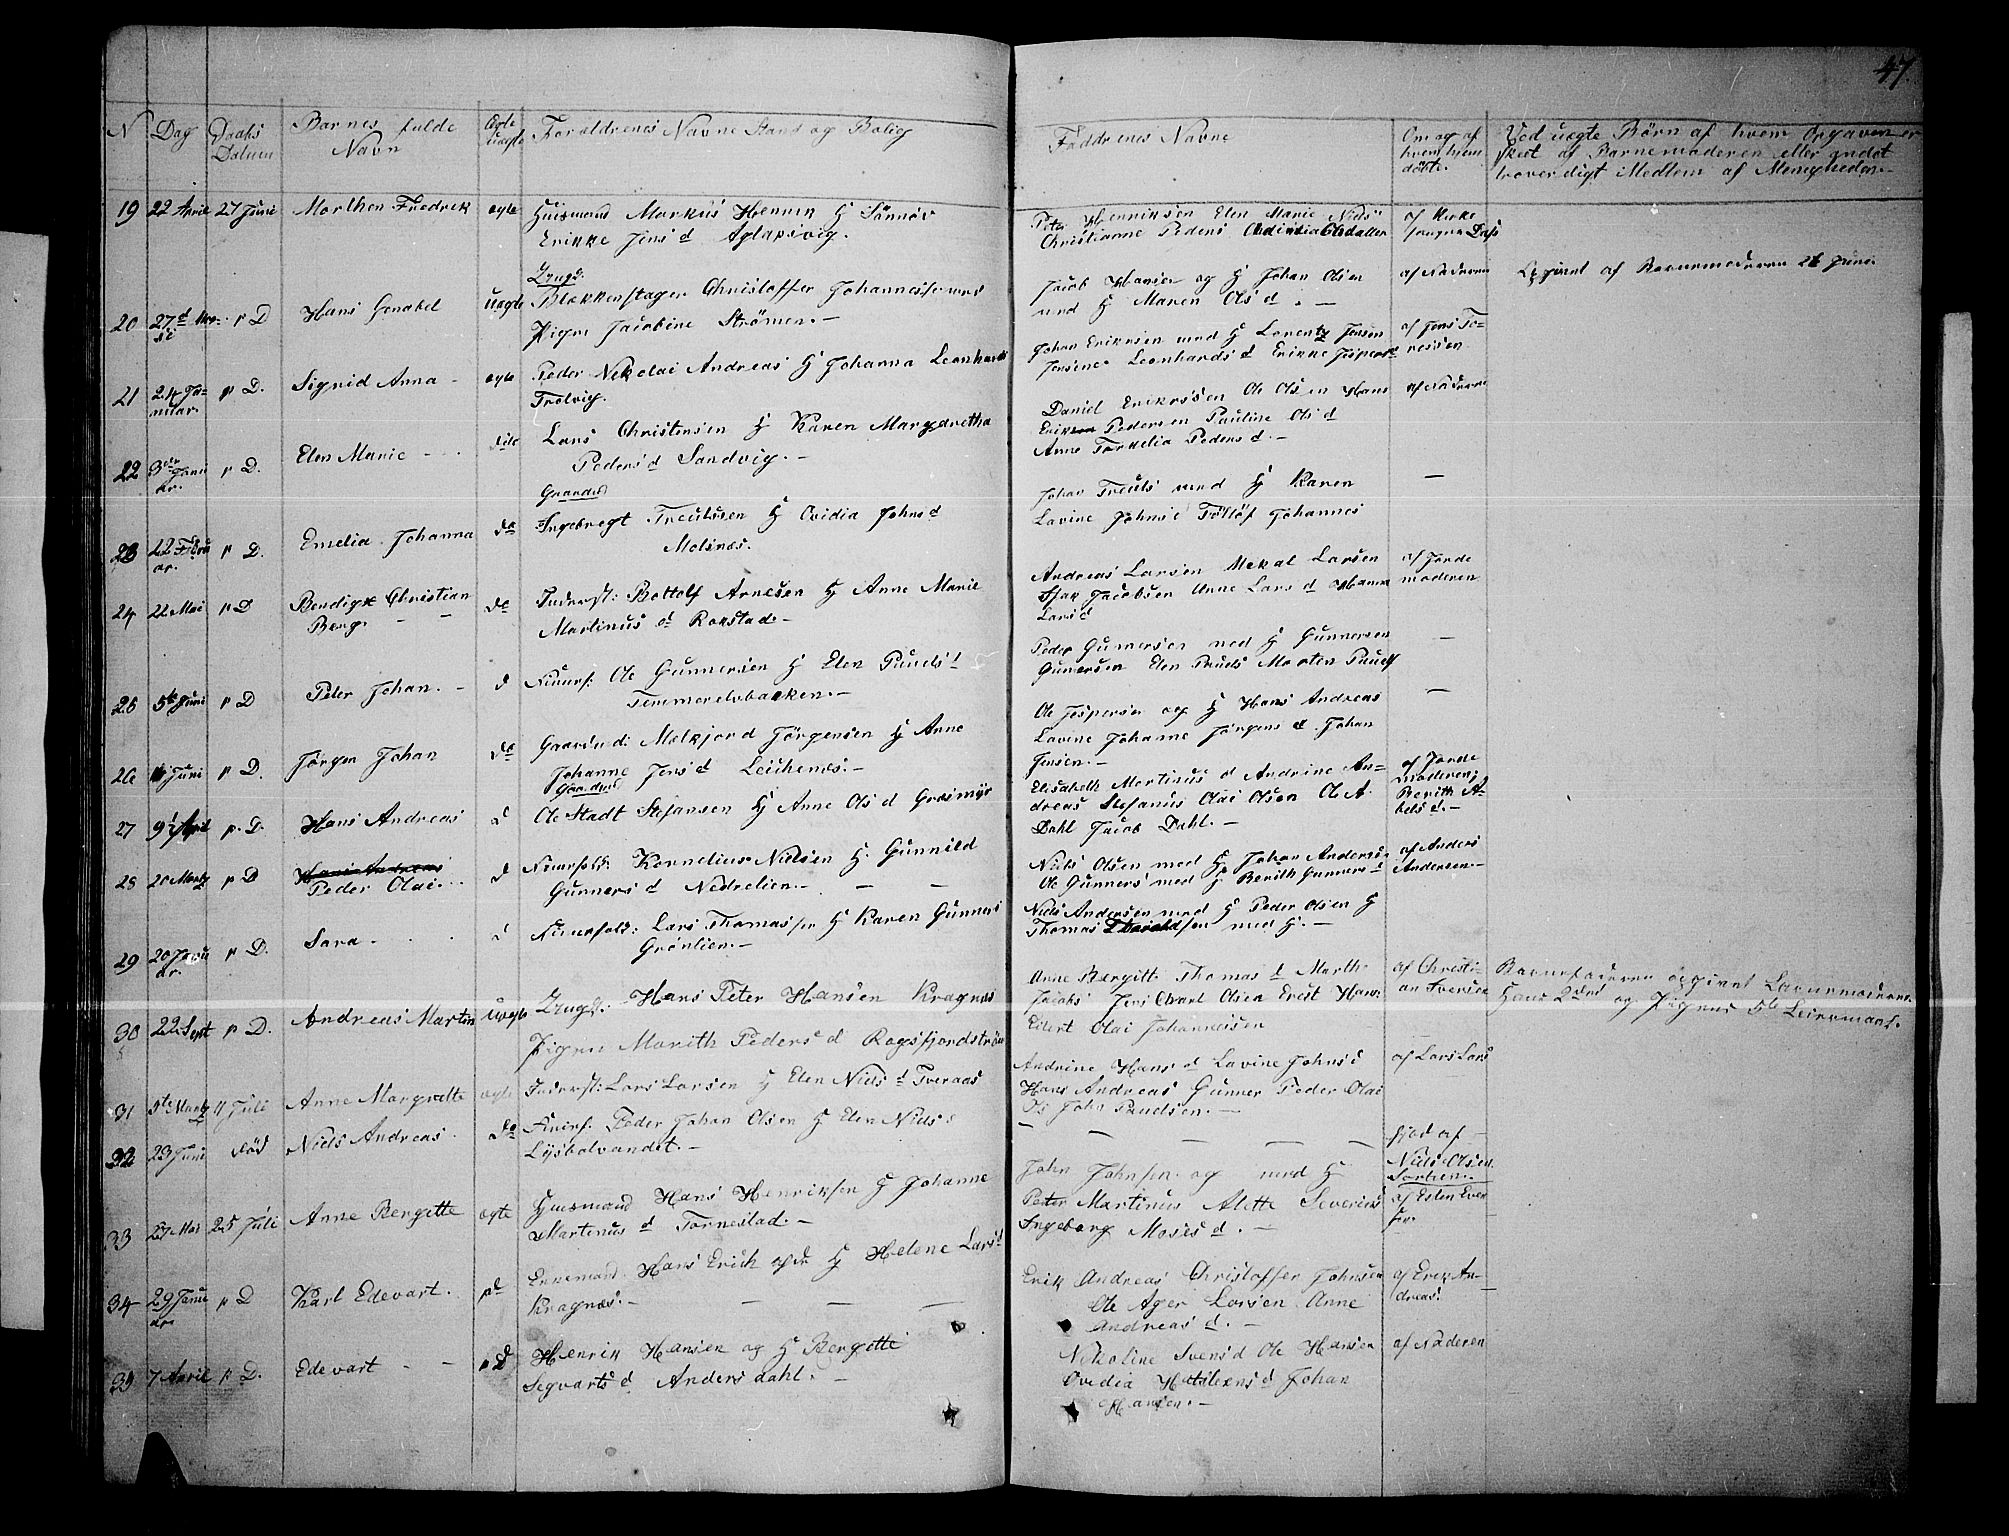 47.
N Dag Daabs Datum Barnes fulde Navn Ægte Uægte Foraldrenes Navne Stand og Bolig
Faddrenes Navne Om og af hvem hjem døbte. Ved uægte Börn af hvem Opgaven er skeet af Barnemoderen eller andet troverdigt Medlem af Menigheden.
19 22 April 27 Juni Morthen Fredrek ægte Huusmand Markus Henrik H
Erikke Jens d Aglapsvig.
Peter Henriksen Elen Marie Niels
Christianne Peders
af Kirke
20 27d p D Hans uægte Ungk: Blokkenstager Christoffer Johannessen med
Pigen Jacobine Strömen.—
Jacob Hansen og H Johan Olsen
med H Maren Ols d. —
af Faderen
Opgivet af Barnemoderen 26 Juni.
21 24 Januar. p D. Sigrid Anna - ægte Peder Nikolai Andreas H Johanna Leonhards
Trolvig.
Johan Eriksen med H Lorentz Jensen
Jensine Leonhards d Erikke Jespers d
af Jens
22 3die Januar. p D. Elen Marie - - . dito Lars Christensen H Karen Margaretha
Peders d Sandvig. —
Daniel Erikssen Ole Olsen Hans
Pedersen Pauline Ols d
Anne Torkelia Peders d.—
af Faderen
23 22 Februar. p D. Emelia Johanna do Gaardmd
Ingebregt Treulssen H Ovidia Johns d
Molsnæs.
Johan Treuls med H Karen
Lavine Johns d Johannes
—
24 22 Mai p D Bendigk Christian
Berg. - - do Inderst: Bottolf Arnesen H Anne Marie
Martinus d Rokstad.—
Andreas Larsen Mekal Larsen
Isak Jacobsen Anne Lars d Hanna
Lars d
af Jordemoderen
25 5te Juni p D Peter Johan. - d Ole Gunnersen H Elen Pouels d
Temmerelvbakken.—
Peder Gunnersen med H Gunnersen
Gunersen Elen Pouels Morten Pouels
—
26 Juni p D. Jörgen Johan do Gaardmd: Melkjord Jörgensen H Anne
Johanne Jens d Leikenæs.—
Ole Jespersen og H Hans Andreas
Lavine Johanne Jörgens d. Johan
Jensen.—
—
27 9 April p. D. Hans Andreas d Gaardmd
Ole Stadt Stefansen H Anne Ols d Græsmyr
Elisabeth Martinus d Andrine Andreas
Stefanus Olai Olsen Ole A.
Dahl Jacob Dahl.—
af Jordemoderen
Berith Abels d.—
28 20 Martz p D Hans Andreas
Peder Olai... d Kornelius Nielsen H. Gunnild
Gunners d Nedrelien.— — —
Niels Olsen med H. Johan Anders
Ole Gunners med H Berith Gunners d
af Anders Andersen.—
29 20 Januar. p D. Sara . . . d Lars Thomassen H Karen Gunners
Grönlien.—
Niels Andersen med H Peder Olsen H
Thomas med H. —
30 22 Sept p D. Andreas Martin uægte Ungk: Hans Peter Hansen Kragnæs
Pigen Marith Peders d Rogsfjordström
Anne Bergitte Thomas d Marth.
Jacobs Jens Olsen Hans
Edert Olai Johannessen
af Christian Iversen
Barnefaderen opgivet Barnemoderen.
Hans 2det og Pigens 5te Leiermaal.
31 5te Martz 11 Juli Anne Margrette ægte Inderst: Lars Larsen H Elen Niels d Tveraas
Andrine Hans d Lavine Johns d
Hans Andreas Gunner Peder Olai
John Pouelsen.—
af Lars Lars
32 23 Juni död Niels Andreas. do Peder Johan Olsen H Elen Niels d
Lysbolvandet.—
— — — — —
af
Niels Olsen
33 27 Mai 25 Juli Anne Bergette ægte Huusmand Hans Henriksen H Johanne
Martinus d Tornestad.—
John Johnsen og med H
Peter Martinus Alette Severins
Ingeborg Moses d. —
af Esten
34 29 Januar. p D Karl Edevart. pd Enkemand. Hans Erich H Helene Lars d
Kragnæs.— — — —
Erik Andreas Christoffer Johnsen
Ole Ager Larsen Anne
Andreas d. —
af Erik Andreas.
35 7 April p D. Edevart - - p D Henrik Hansen og H Bergette
Segvarts d Anders dahl. —
Nikoline Svens d Ole Hansen
Ovedia Johan
Hansen. —
af Faderen